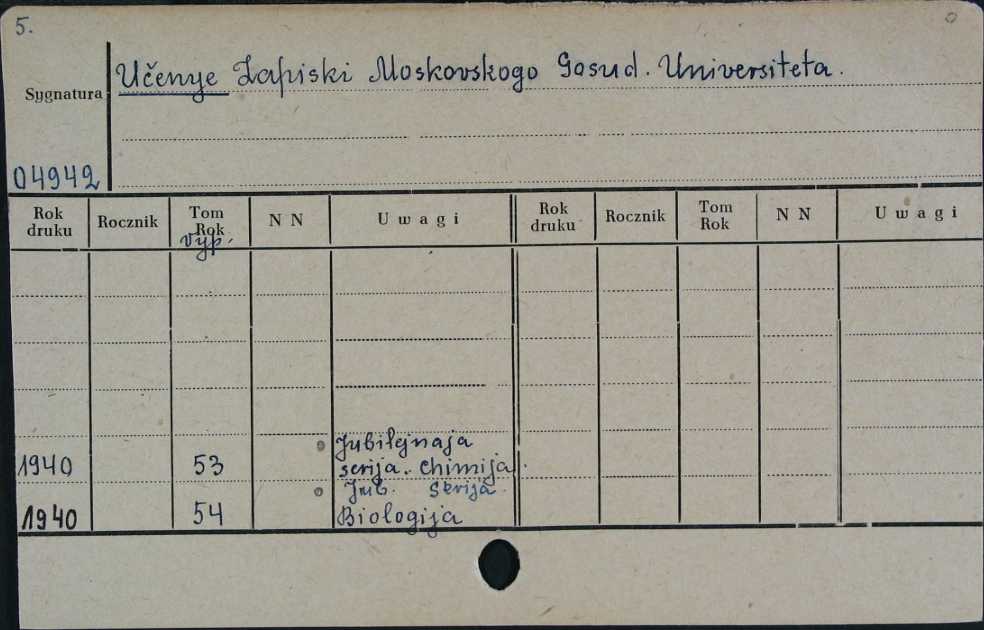 5.
Učenye Zapiski Moskovskogo Gosud. Universiteta.
Sygnatura
04942
Rok druku Rocznik Tom Rok vyp. N N Uwagi Rok druku Rocznik Tom Rok N N Uwagi
Jubilejnaja
1940 53 serija. Chimija.
Jub. Serija.
1940 54 Biologija